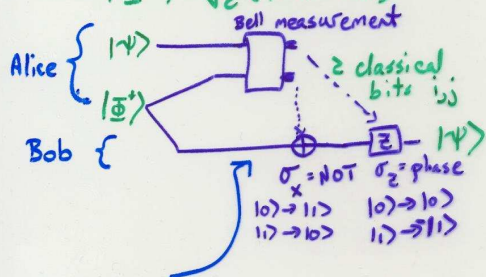 Bell measurement
Alice { |ψ⟩
2 classical
bits i,j
|Φ⁺⟩
Bob {
Z |ψ⟩
σx = NOT σz = phase
|0⟩→|1⟩ |0⟩→|0⟩
|1⟩→|0⟩ |1⟩→-|1⟩